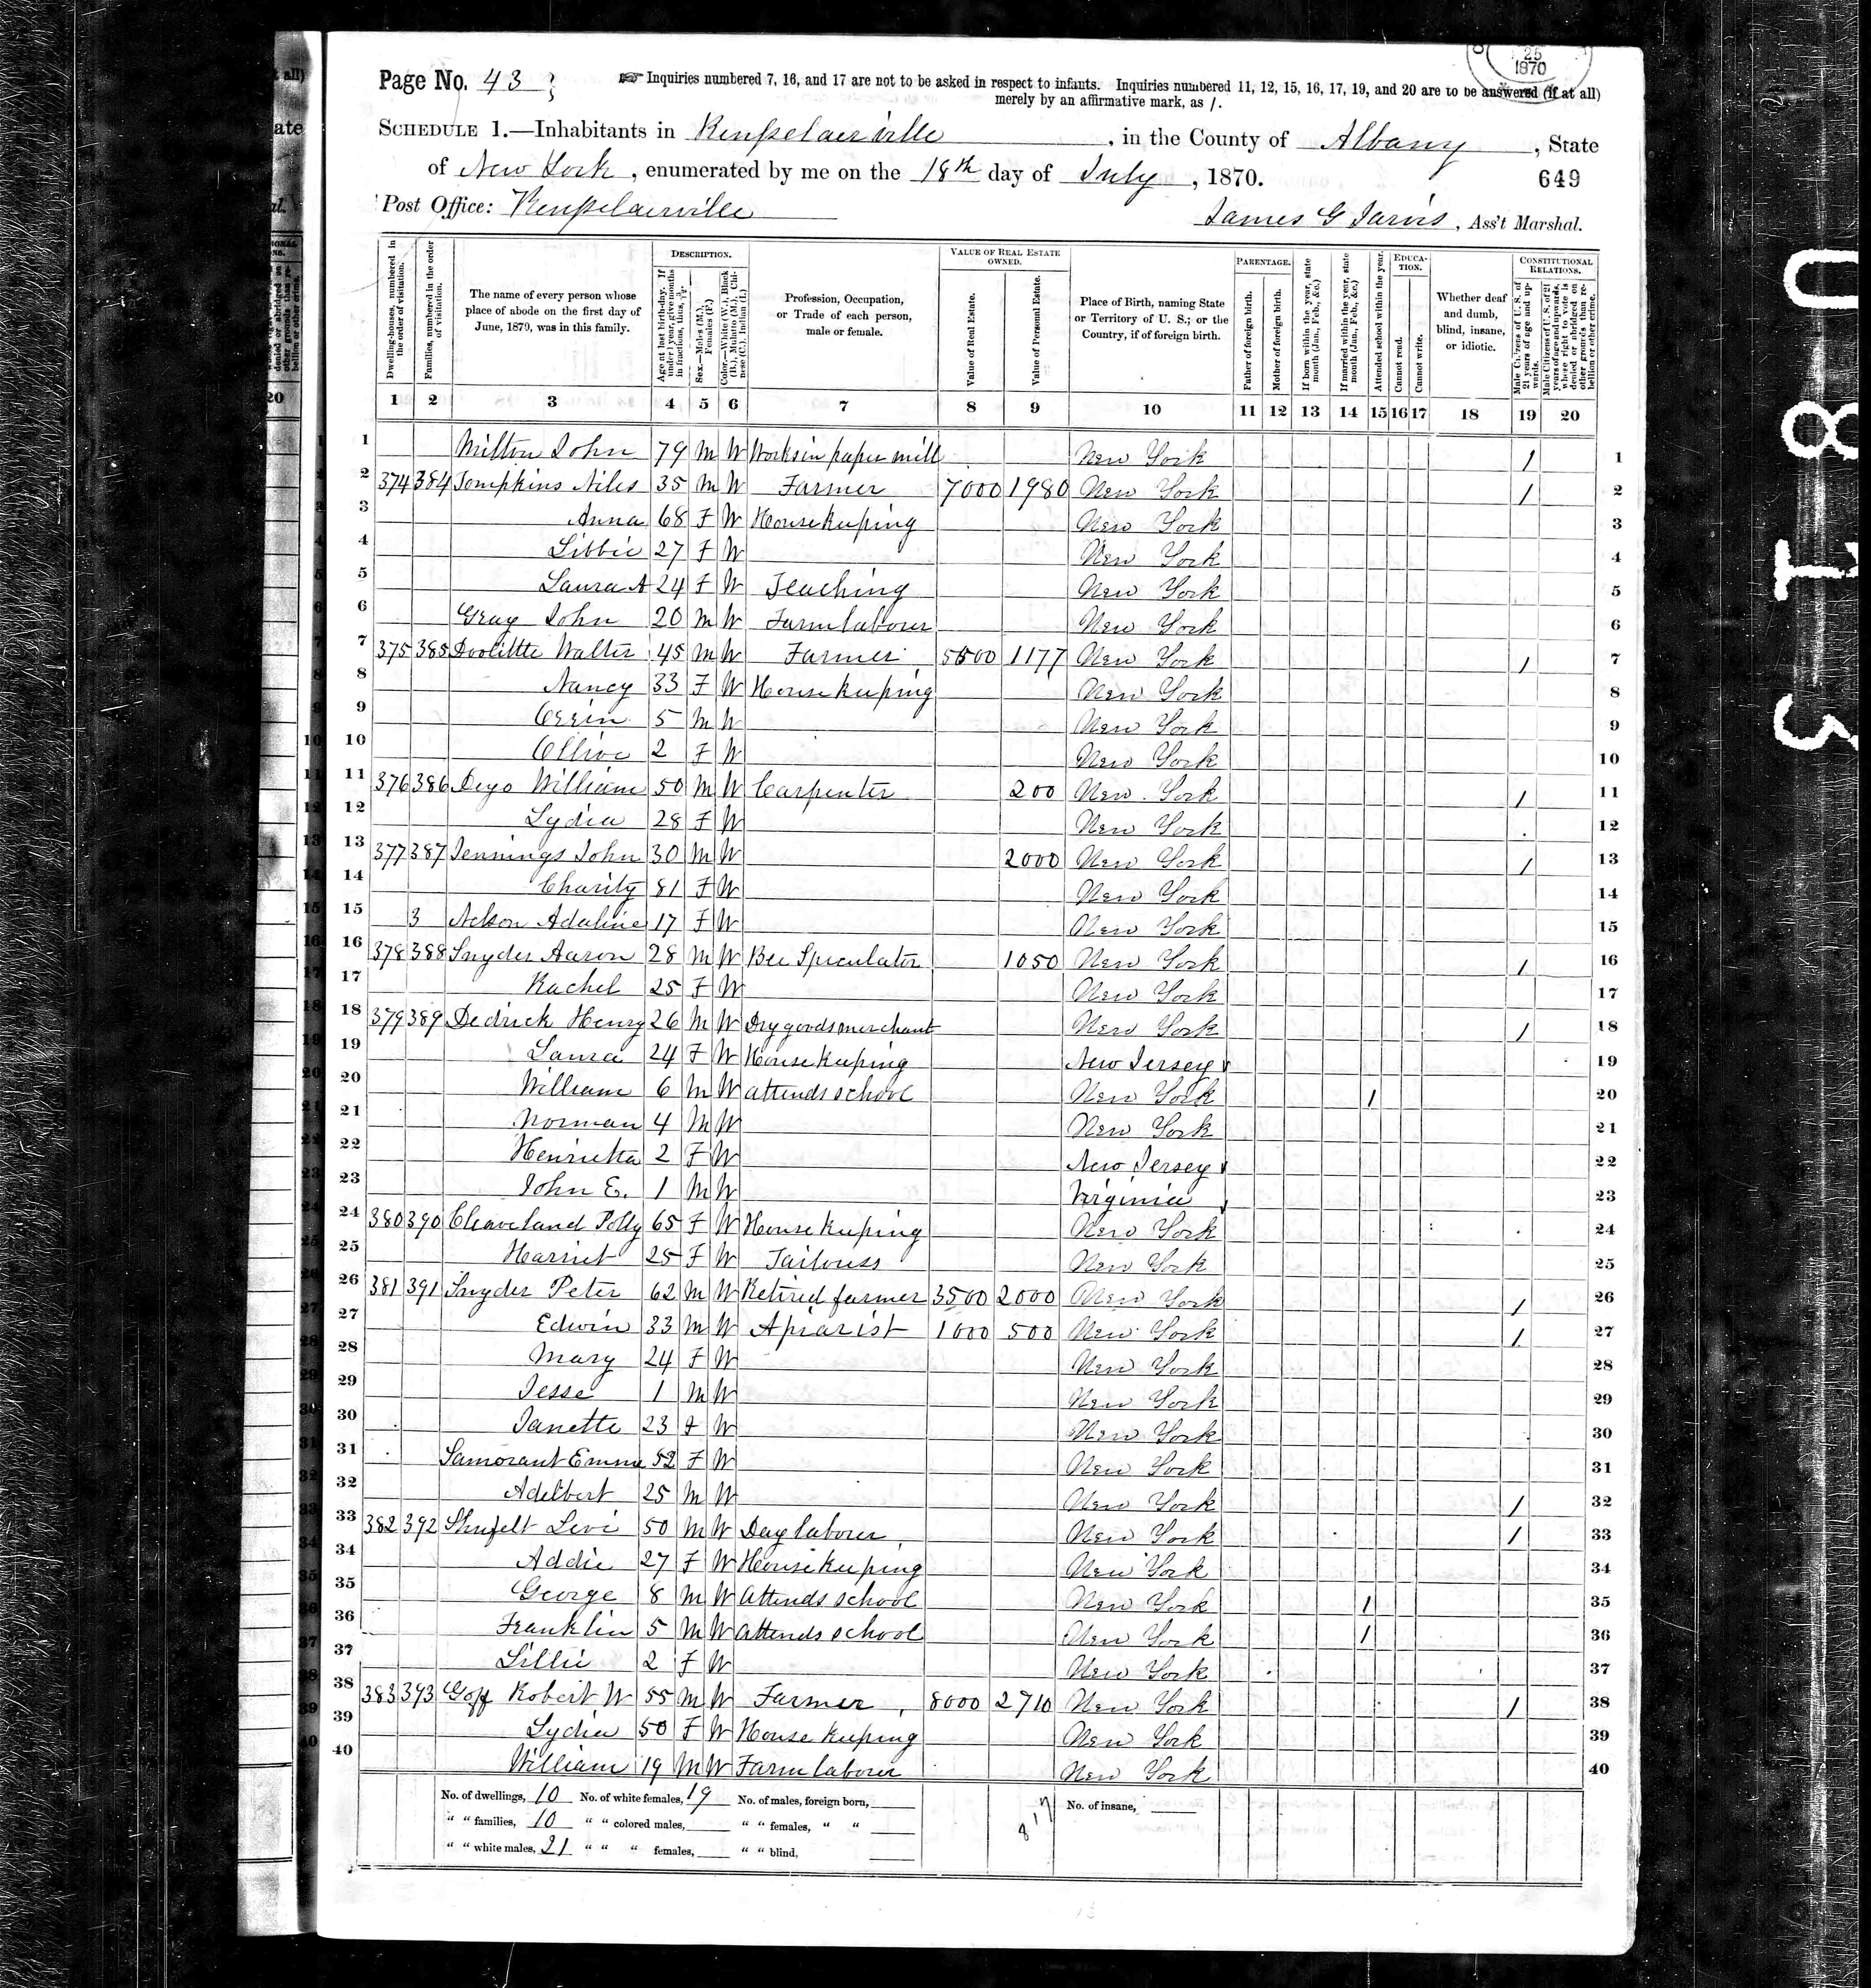 25
1870
Page No. 43
Inquiries numbered 7, 16, and 17 are not to be asked in respect to infants. Inquiries numbered 11, 12, 15, 16, 17, 19, and 20 are to be answered (if at all)
merely by an affirmative mark, as /.
SCHEDULE 1.—Inhabitants in Renſselaerville, in the County of Albany, State
of New York, enumerated by me on the 18th day of July, 1870.
649
Post Office: Renſselaerville
James G Jarvis, Ass't Marshal.
Dwelling-houses, numbered in the order of visitation.
Families, numbered in the order of visitation.
The name of every person whose place of abode on the first day of June, 1870, was in this family.
DESCRIPTION.
Age at last birth-day. If under 1 year, give months in fractions, thus, 3/12.
Sex.—Males (M.), Females (F.)
Color.—White (W.), Black (B.), Mulatto (M.), Chinese (C.), Indian (I.)
Profession, Occupation, or Trade of each person, male or female.
VALUE OF REAL ESTATE OWNED.
Value of Real Estate.
Value of Personal Estate.
Place of Birth, naming State or Territory of U. S.; or the Country, if of foreign birth.
PARENTAGE.
Father of foreign birth.
Mother of foreign birth.
If born within the year, state month (Jan., Feb., &c.)
If married within the year, state month (Jan., Feb., &c.)
Attended school within the year.
EDUCATION.
Cannot read.
Cannot write.
Whether deaf and dumb, blind, insane, or idiotic.
CONSTITUTIONAL RELATIONS.
Male Citizens of U. S. of 21 years of age and upwards.
Male Citizens of U. S. of 21 years of age and upwards, where right to vote is denied or abridged on other grounds than rebellion or other crime.
1 2 3 4 5 6 7 8 9 10 11 12 13 14 15 16 17 18 19 20
1 Milton John 79 M W Works in paper mill New York / 1
2 374 384 Tompkins Niles 35 M W Farmer 7000 1980 New York / 2
3 Anna 68 F W Housekeeping New York 3
4 Libbie 27 F W New York 4
5 Laura A 24 F W Teaching New York 5
6 Gray John 20 M W Farm laborer New York 6
7 375 385 Doolittle Walter 45 M W Farmer 5500 1177 New York / 7
8 Nancy 33 F W Housekeeping New York 8
9 Orrin 5 M W New York 9
10 Ollive 2 F W New York 10
11 376 386 Deyo William 50 M W Carpenter 200 New York / 11
12 Lydia 28 F W New York 12
13 377 387 Jennings John 30 M W 2000 New York / 13
14 Charity 81 F W New York 14
15 3 Adaline 17 F W New York 15
16 378 388 Snyder Aaron 28 M W Bee Speculator 1050 New York / 16
17 Rachel 25 F W New York 17
18 379 389 Dedrick Henry 26 M W Dry goods merchant New York / 18
19 Laura 24 F W Housekeeping New Jersey 19
20 William 6 M W attends school New York / 20
21 Norman 4 M W New York 21
22 Henrietta 2 F W New Jersey 22
23 John E. 1 M W Virginia 23
24 380 390 Cleaveland Polly 65 F W Housekeeping New York 24
25 Harriet 25 F W Tailouss New York 25
26 381 391 Snyder Peter 62 M W Retired farmer 3500 2000 New York / 26
27 Edwin 33 M W Apiarist 1000 500 New York / 27
28 Mary 24 F W New York 28
29 Jesse 1 M W New York 29
30 Janette 23 F W New York 30
31 Emma 52 F W New York 31
32 Adelbert 25 M W New York / 32
33 382 392 Shufelt Levi 50 M W Day laborer New York / 33
34 Addie 27 F W Housekeeping New York 34
35 George 8 M W attends school New York / 35
36 Franklin 5 M W attends school New York / 36
37 Lillie 2 F W New York 37
38 383 393 Goff Robert W 55 M W Farmer 8000 2710 New York / 38
39 Lydia 50 F W House keeping New York 39
40 William 19 M W Farm laborer New York 40
No. of dwellings, 10 No. of white females, 19 No. of males, foreign born, No. of insane,
" " families, 10 " " colored males, " " females, " "
" " white males, 21 " " " females, " " blind,